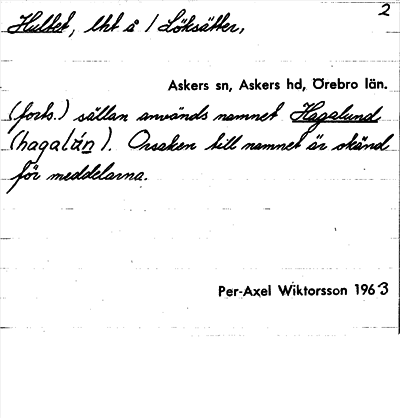 2
Hultet, lht å / Löksätter,
Askers sn, Askers hd, Örebro län.
(forts.) sällan används namnet Hagalund
(hagalún). Orsaken till namnet är okänd
för meddelarna.
Per-Axel Wiktorsson 1963